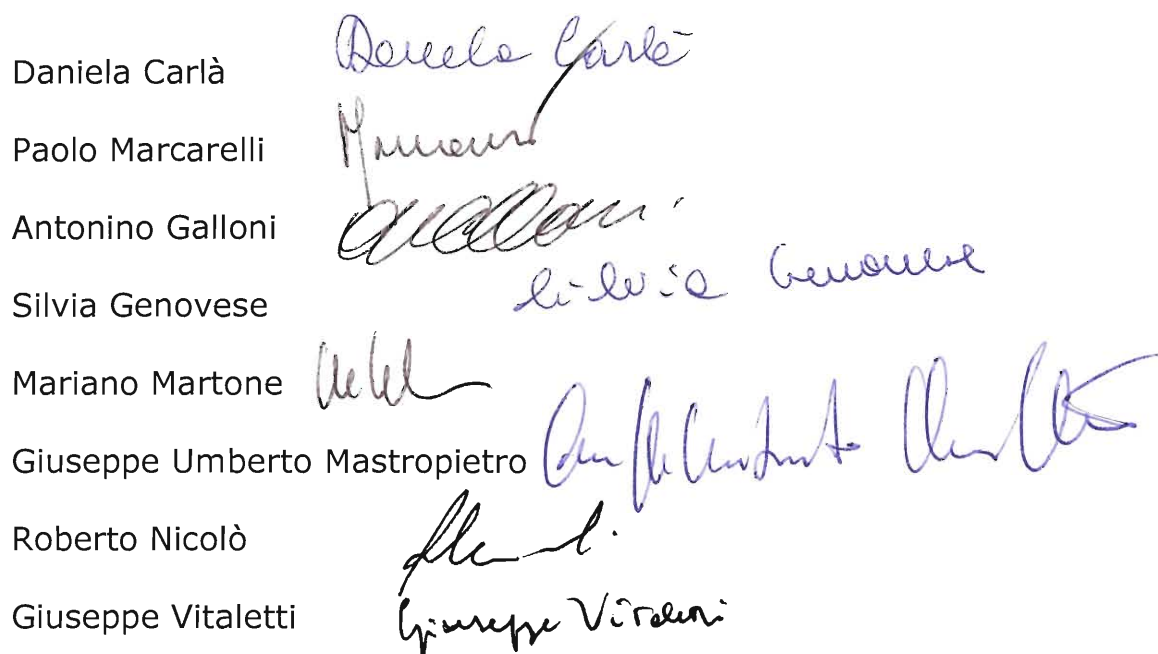 Daniela Carlà Daniela Carlà
Paolo Marcarelli
Antonino Galloni
Silvia Genovese Silvia Genovese
Mariano Martone
Giuseppe Umberto Mastropietro
Roberto Nicolò
Giuseppe Vitaletti Giuseppe Vitaletti